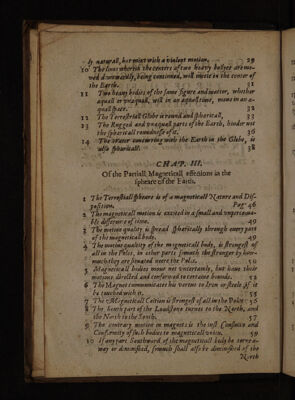 ly naturall, but mixt with a violent motion. 29
10 The lines wherein the centers of two heavy bodyes are moved downwards, being continued, will meete in the center of the Earth. 31
11 Two heavy bodies of the same figure and matter, whether æquall or vnequall, will in an æquall time, moue in an æquall space. 32
12 The Terrestriall Globe is round and sphæricall, 33
13 The Rugged and vnequall parts of the Earth, hinder not the sphæricall roundnesse of it. 36
14 The Water concurring with the Earth in the Globe, is also sphæricall. 38
CHAP. III.
Of the Partiall Magneticall affections in the
sphære of the Earth.
1 The Terrestriall sphære is of a magneticall Nature and Disposition. Pag. 46
2 The magneticall motion is excited in a small and vnperceiuable difference of time. 49
3 The motion quality is spread sphærically through euery part of the magneticall body. 49
4 The motiue quality of the magneticall body, is strongest of all in the Poles, in other parts
5 Magneticall bodies moue not vncertainely, but haue their motions directed and conformed to certaine bounds. 53
6 The Magnet communicates his vertue to Iron or steele if it be touched with it.
7 The Magneticall Coition is strongest of all in the Poles 56
8 The South part of the Loadstone turnes to the North, and the North to the South. 57
9 The contrary motion in magnets is the iust Confluxe and Conformity of such bodies to magneticall vnion. 59
10 If any part Southward of the magneticall body be torne away or diminished, so much shall also be diminished of the
North